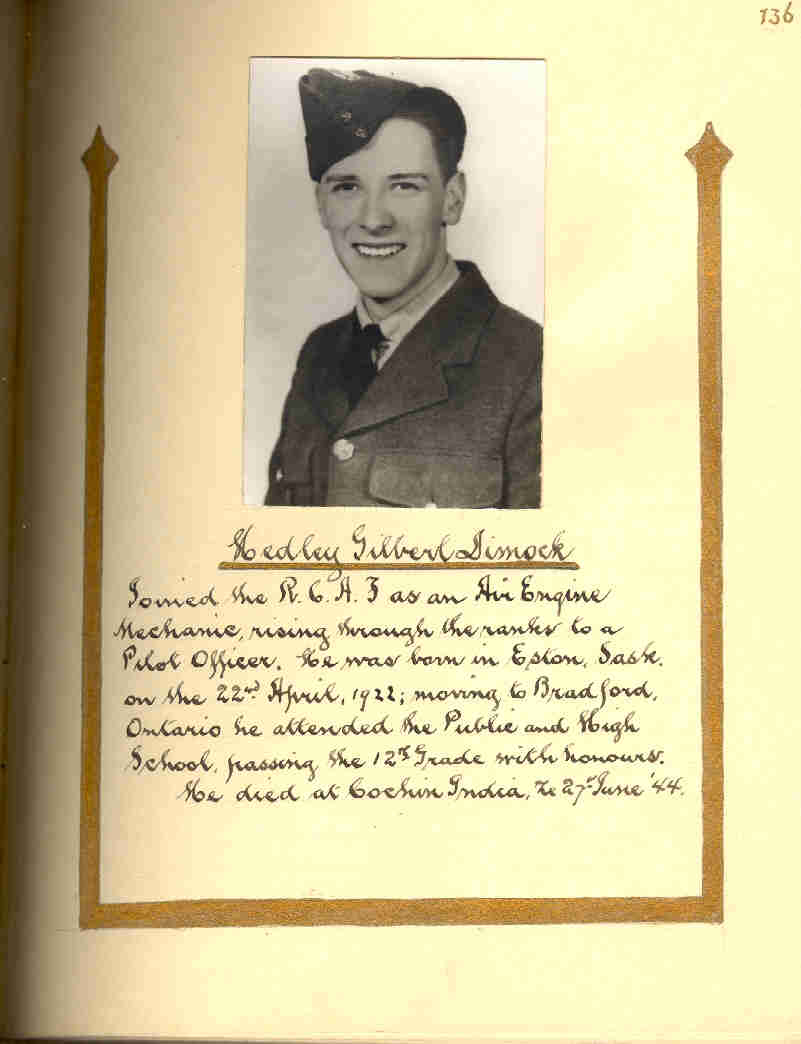 136
Hedley Gilbert Dimock
Joined the R.C.A.F as an Air Engine
Mechanic, rising through the ranks to a
Pilot Officer. He was born in Eston, Sask.
on the 22nd April, 1922; moving to Bradford,
Ontario he attended the Public and High
School, passing the 12th Grade with honours.
He died at Cochin India, 27th June '44.